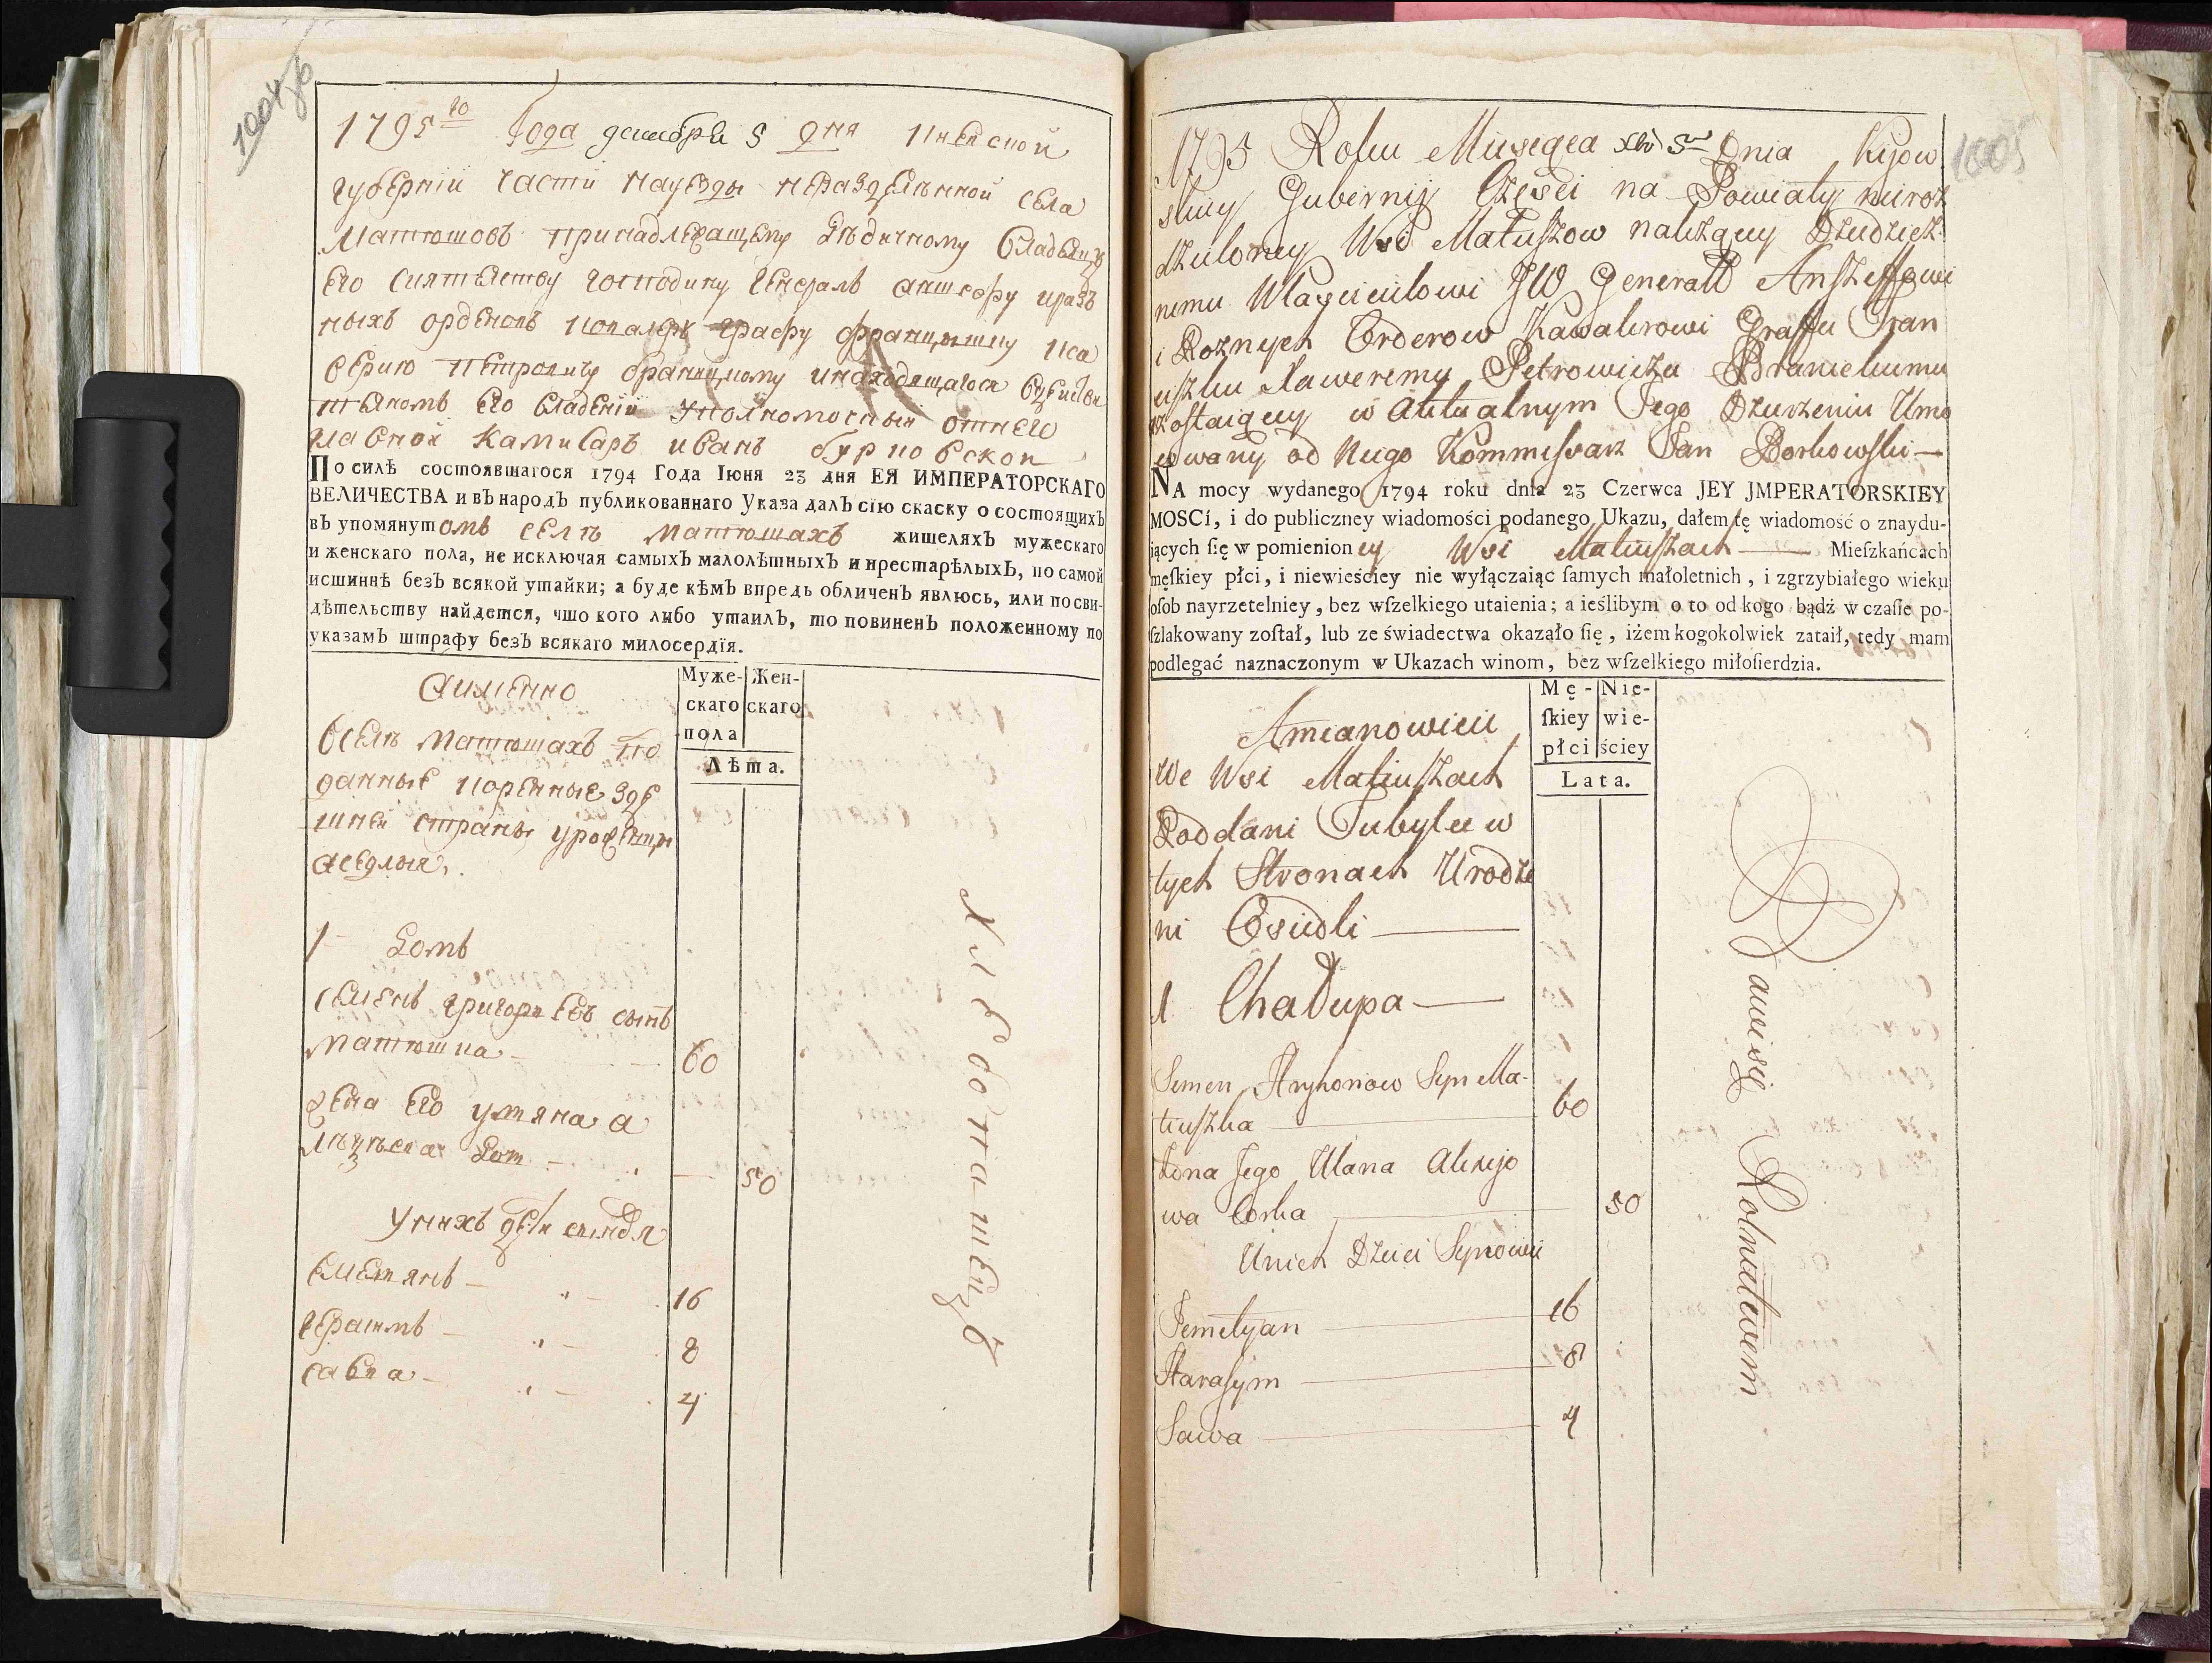 1004 об
1795го Года декабря 5 дня Киевской
губернии части науезды неразделенной села
Матюшовъ принадлежащему дѣдичному владельцу
Его сиятельству господину Генералъ аншефу иразъ
ныхъ орденовъ кавалеру графу францышку кса
верию петровичу браницкому инаходящагося вдействи
тельномъ его владении уполномоченый отнего
главной камисаръ иванъ бурковской
По силѣ состоявшагося 1794 Года Iюня 23 дня ЕЯ ИМПЕРАТОРСКАГО
ВЕЛИЧЕСТВА и въ народъ публикованнаго Указа далъ сїю скаску о состоящихъ
въ упомянутомъ селѣ матюшахъ жишеляхъ мужескаго
и женскаго пола, не исключая самыхъ малолѣтныхъ и престарѣлыхъ, по самой
исшиннѣ безъ всякой ушайки; а буде кѣмъ впредь обличенъ явлюсь, или по сви-
дѣтельству найдется, чшо кого либо утаилъ, то повиненъ положенному по
указамъ штрафу безъ всякаго милосердїя.
Аименно
Муже- Жен-
скаго скаго
пола
Лѣта.
Вселѣ матюшахъ по
данные коренные зде
шней страны уроженцы
аседлыя.
1 домъ
семенъ григорьевъ сынъ
матюшка 60
жена его ульяна а
лекѣева доч 50
унихъ дети сыновья
емельянъ 16
герасимъ 8
савка 4
хлебопашецъ
1005
1795 Roku Miesiąca Xbr 5 Dnia Kijow
skiey Gubernij Części na Powiaty nieroz
dzieloney Wsi Matuszow należącey Dziedzicz
nemu Włascicielowi JW Generałł Anszeffowi
i Roznych Orderow Kawalerowi Graffu Fran
ciszku Xaweremu Petrowicza Branickiemu
zostaiącey w Aktualnym Jego Dzierżeniu Umo
cowany od Niego Kommissarz Jan Borkowski —
NA mocy wydanego 1794 roku dnia 23 Czerwca JEY JMPERATORSKIEY
MOSCÍ, i do publiczney wiadomości podanego Ukazu, dałem tę wiadomość o znaydu-
iących ſię w pomienioney Wsi Matiuszach — Mieſzkańcach
męſkiey płci, i niewieściey nie wyłączaiąc ſamych małoletnich, i zgrzybiałego wieku
oſob nayrzetelniey, bez wſzelkiego utaienia; a ieślibym o to od kogo bądź w czaſie po-
ſzlakowany zoſtał, lub ze świadectwa okazało ſię, iżem kogokolwiek zataił, tedy mam
podlegać naznaczonym w Ukazach winom, bez wſzelkiego miłoſierdzia.
Amianowicie
Mę- Nie-
ſkiey wie-
płci ściey
Lata.
We Wsi Matiuszach
Poddani Tubylcu w
tych Stronach Urodze
ni Osiedli —
1 Chałupa —
Semen Hryhorow Syn Ma-
tiuszka 60
Żona Jego Ulana Alexijo
wa Corka 50
Unich Dzieci Synowie
Jemelyan 16
Harasym 8
Sawa 4
Bawi się Rolnictwem